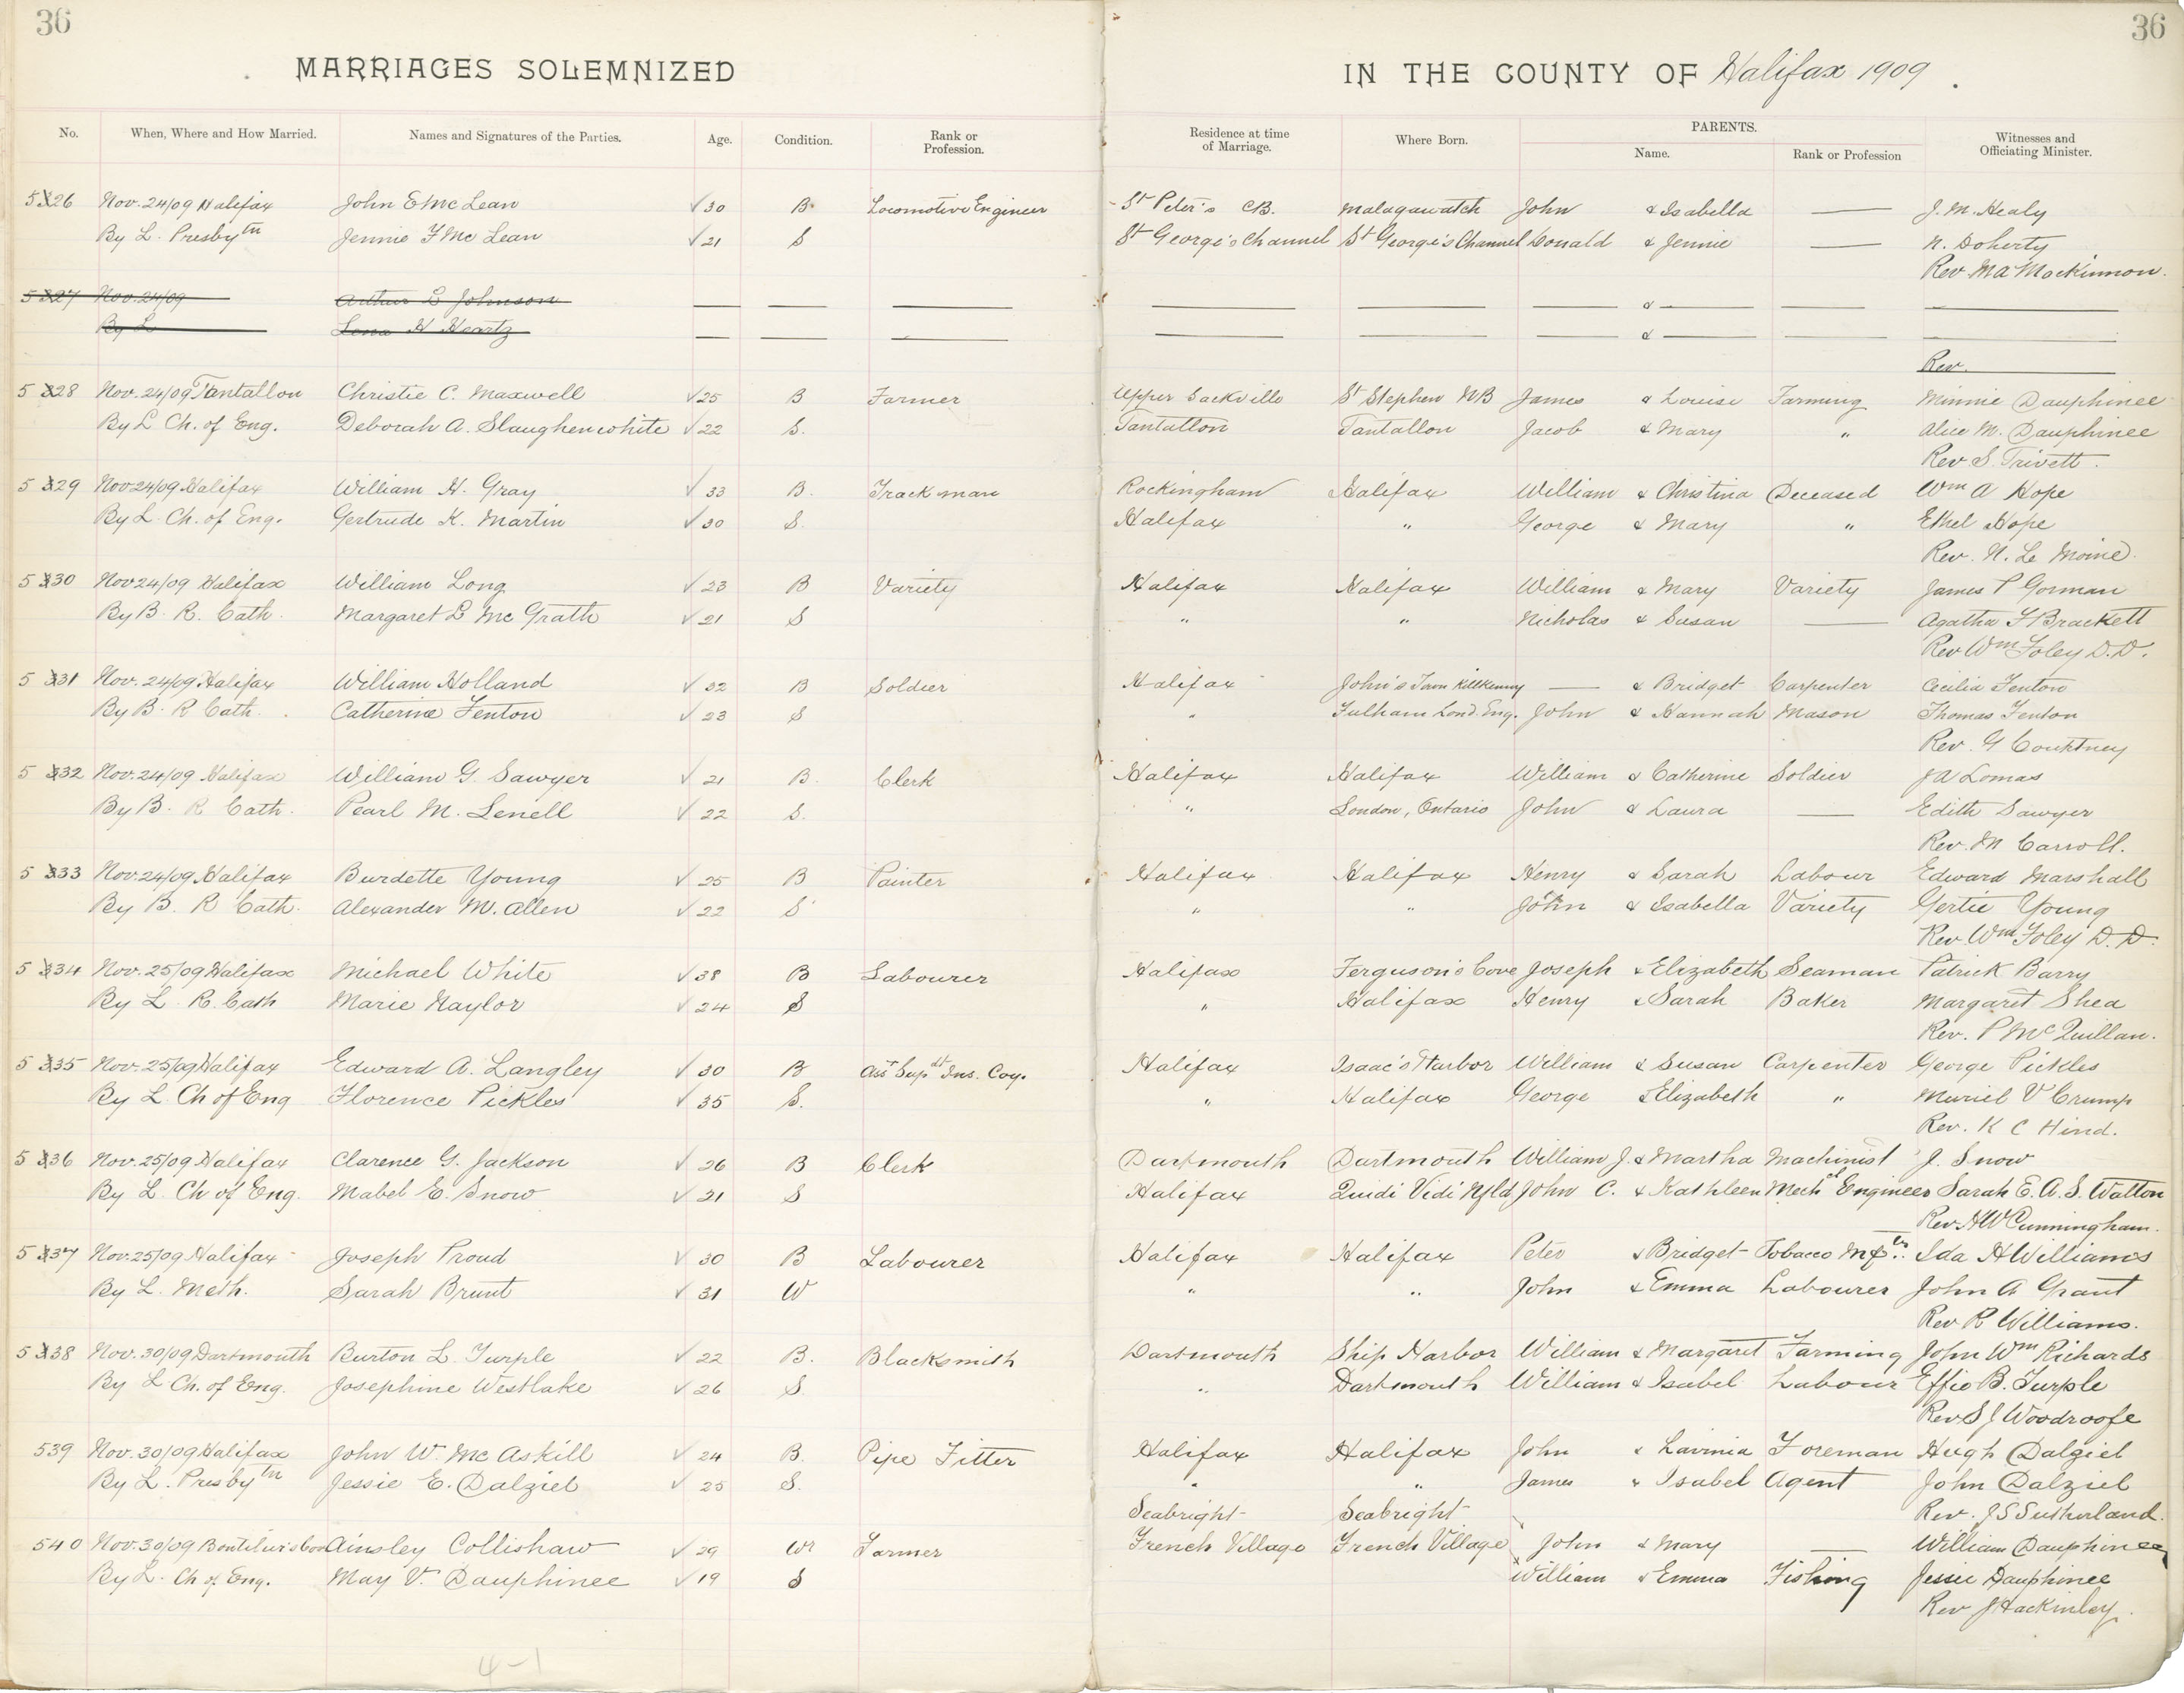 36
36
MARRIAGES SOLEMNIZED
IN THE COUNTY OF Halifax 1909.
No. When, Where and How Married. Names and Signatures of the Parties. Age. Condition. Rank or Profession. Residence at time of Marriage. Where Born. PARENTS. Name. Rank or Profession Witnesses and Officiating Minister.
526 Nov. 24/09 Halifax John E McLean √30 B Locomotive Engineer St Peter's CB. Malagawatch John & Isabella — J. M. Healy
By L. Presbytn Jennie F McLean √21 S St George's Channel St George's Channel Donald & Jennie — N. Doherty
Rev. M A MacKinnon.
527 Nov. 24/09 Arthur L Johnson — — — — — — & — — —
By L Lena H Heartz — — — — — — & — — —
Rev.
528 Nov. 24/09 Tantallon Christie C. Maxwell √25 B Farmer Upper Sackville St Stephen NB James & Louise Farming Minnie Dauphinee
By L Ch. of Eng. Deborah A. Slaughenwhite √22 S. Tantallon Tantallon Jacob & Mary " Alice M. Dauphinee
Rev S. Trivett.
529 Nov 24/09 Halifax William H. Gray √33 B. Trackman Rockingham Halifax William & Christina Deceased Wm A Hope
By L Ch. of Eng. Gertrude K. Martin √30 S. Halifax " George & Mary " Ethel Hope
Rev. N. Le Moine.
530 Nov 24/09 Halifax William Long √23 B Variety Halifax Halifax William & Mary Variety James P Gorman
By B. R. Cath. Margaret L McGrath √21 S " " Nicholas & Susan — Agatha F Brackett
Rev Wm Foley D.D.
531 Nov. 24/09 Halifax William Holland √32 B Soldier Halifax John's Town Killkenny — & Bridget Carpenter Cecilia Fenton
By B. R Cath. Catherine Fenton √23 S " Fulham Lond. Eng. John & Hannah Mason Thomas Fenton
Rev. G Courtney
532 Nov. 24/09 Halifax William G. Sawyer √21 B. Clerk Halifax Halifax William & Catherine Soldier J A Lomas
By B. R Cath. Pearl M. Lenell √22 S. " London, Ontario John & Laura — Edith Sawyer
Rev. M Carroll.
533 Nov. 24/09 Halifax Burdette Young √25 B Painter Halifax Halifax Henry & Sarah Labour Edward Marshall
By B. R Cath. Alexander M. Allen √22 S " " John & Isabella Variety Gertie Young
Rev. Wm Foley D.D.
534 Nov. 25/09 Halifax Michael White √38 B Labourer Halifax Ferguson's Cove Joseph & Elizabeth Seaman Patrick Barry
By L. R. Cath Marie Naylor √24 S " Halifax Henry & Sarah Baker Margaret Shea
Rev. P McQuillan.
535 Nov. 25/09 Halifax Edward A. Langley √30 B Asst Supdt Ins. Coy. Halifax Isaac's Harbor William & Susan Carpenter George Pickles
By L. Ch of Eng Florence Pickles √35 S. " Halifax George & Elizabeth " Muriel V Crump
Rev. K C Hind.
536 Nov. 25/09 Halifax Clarence G. Jackson √26 B Clerk Dartmouth Dartmouth William J. & Martha Machinist J. Snow
By L. Ch of Eng. Mabel E. Snow √21 S Halifax Quidi Vidi Nfld John C. & Kathleen Mechcl Engineer Sarah E. A. S. Watton
Rev. H W Cunningham.
537 Nov. 25/09 Halifax Joseph Proud √30 B Labourer Halifax Halifax Peter & Bridget Tobacco Mfctr. Ida H Williams
By L. Meth. Sarah Brunt √31 W " " John & Emma Labourer John A Grant
Rev R Williams.
538 Nov. 30/09 Dartmouth Burton L. Turple √22 B. Blacksmith Dartmouth Ship Harbor William & Margaret Farming John Wm Richards
By L Ch. of Eng. Josephine Westlake √26 S " Dartmouth William & Isabel Labour Effie B. Turple
Rev S J Woodroofe
539 Nov. 30/09 Halifax John W. McAskill √24 B. Pipe Fitter Halifax Halifax John & Lavinia Foreman Hugh Dalziel
By L. Presbytn Jessie E. Dalziel √25 S. " " James & Isabel Agent John Dalziel
Seabright Seabright Rev. J S Sutherland.
540 Nov. 30/09 Ainsley Collishaw √29 Wr Farmer French Village French Village John & Mary — William Dauphinee
By L. Ch of Eng. May V. Dauphinee √19 S William & Emma Fishing Jessie Dauphinee
Rev
4-1